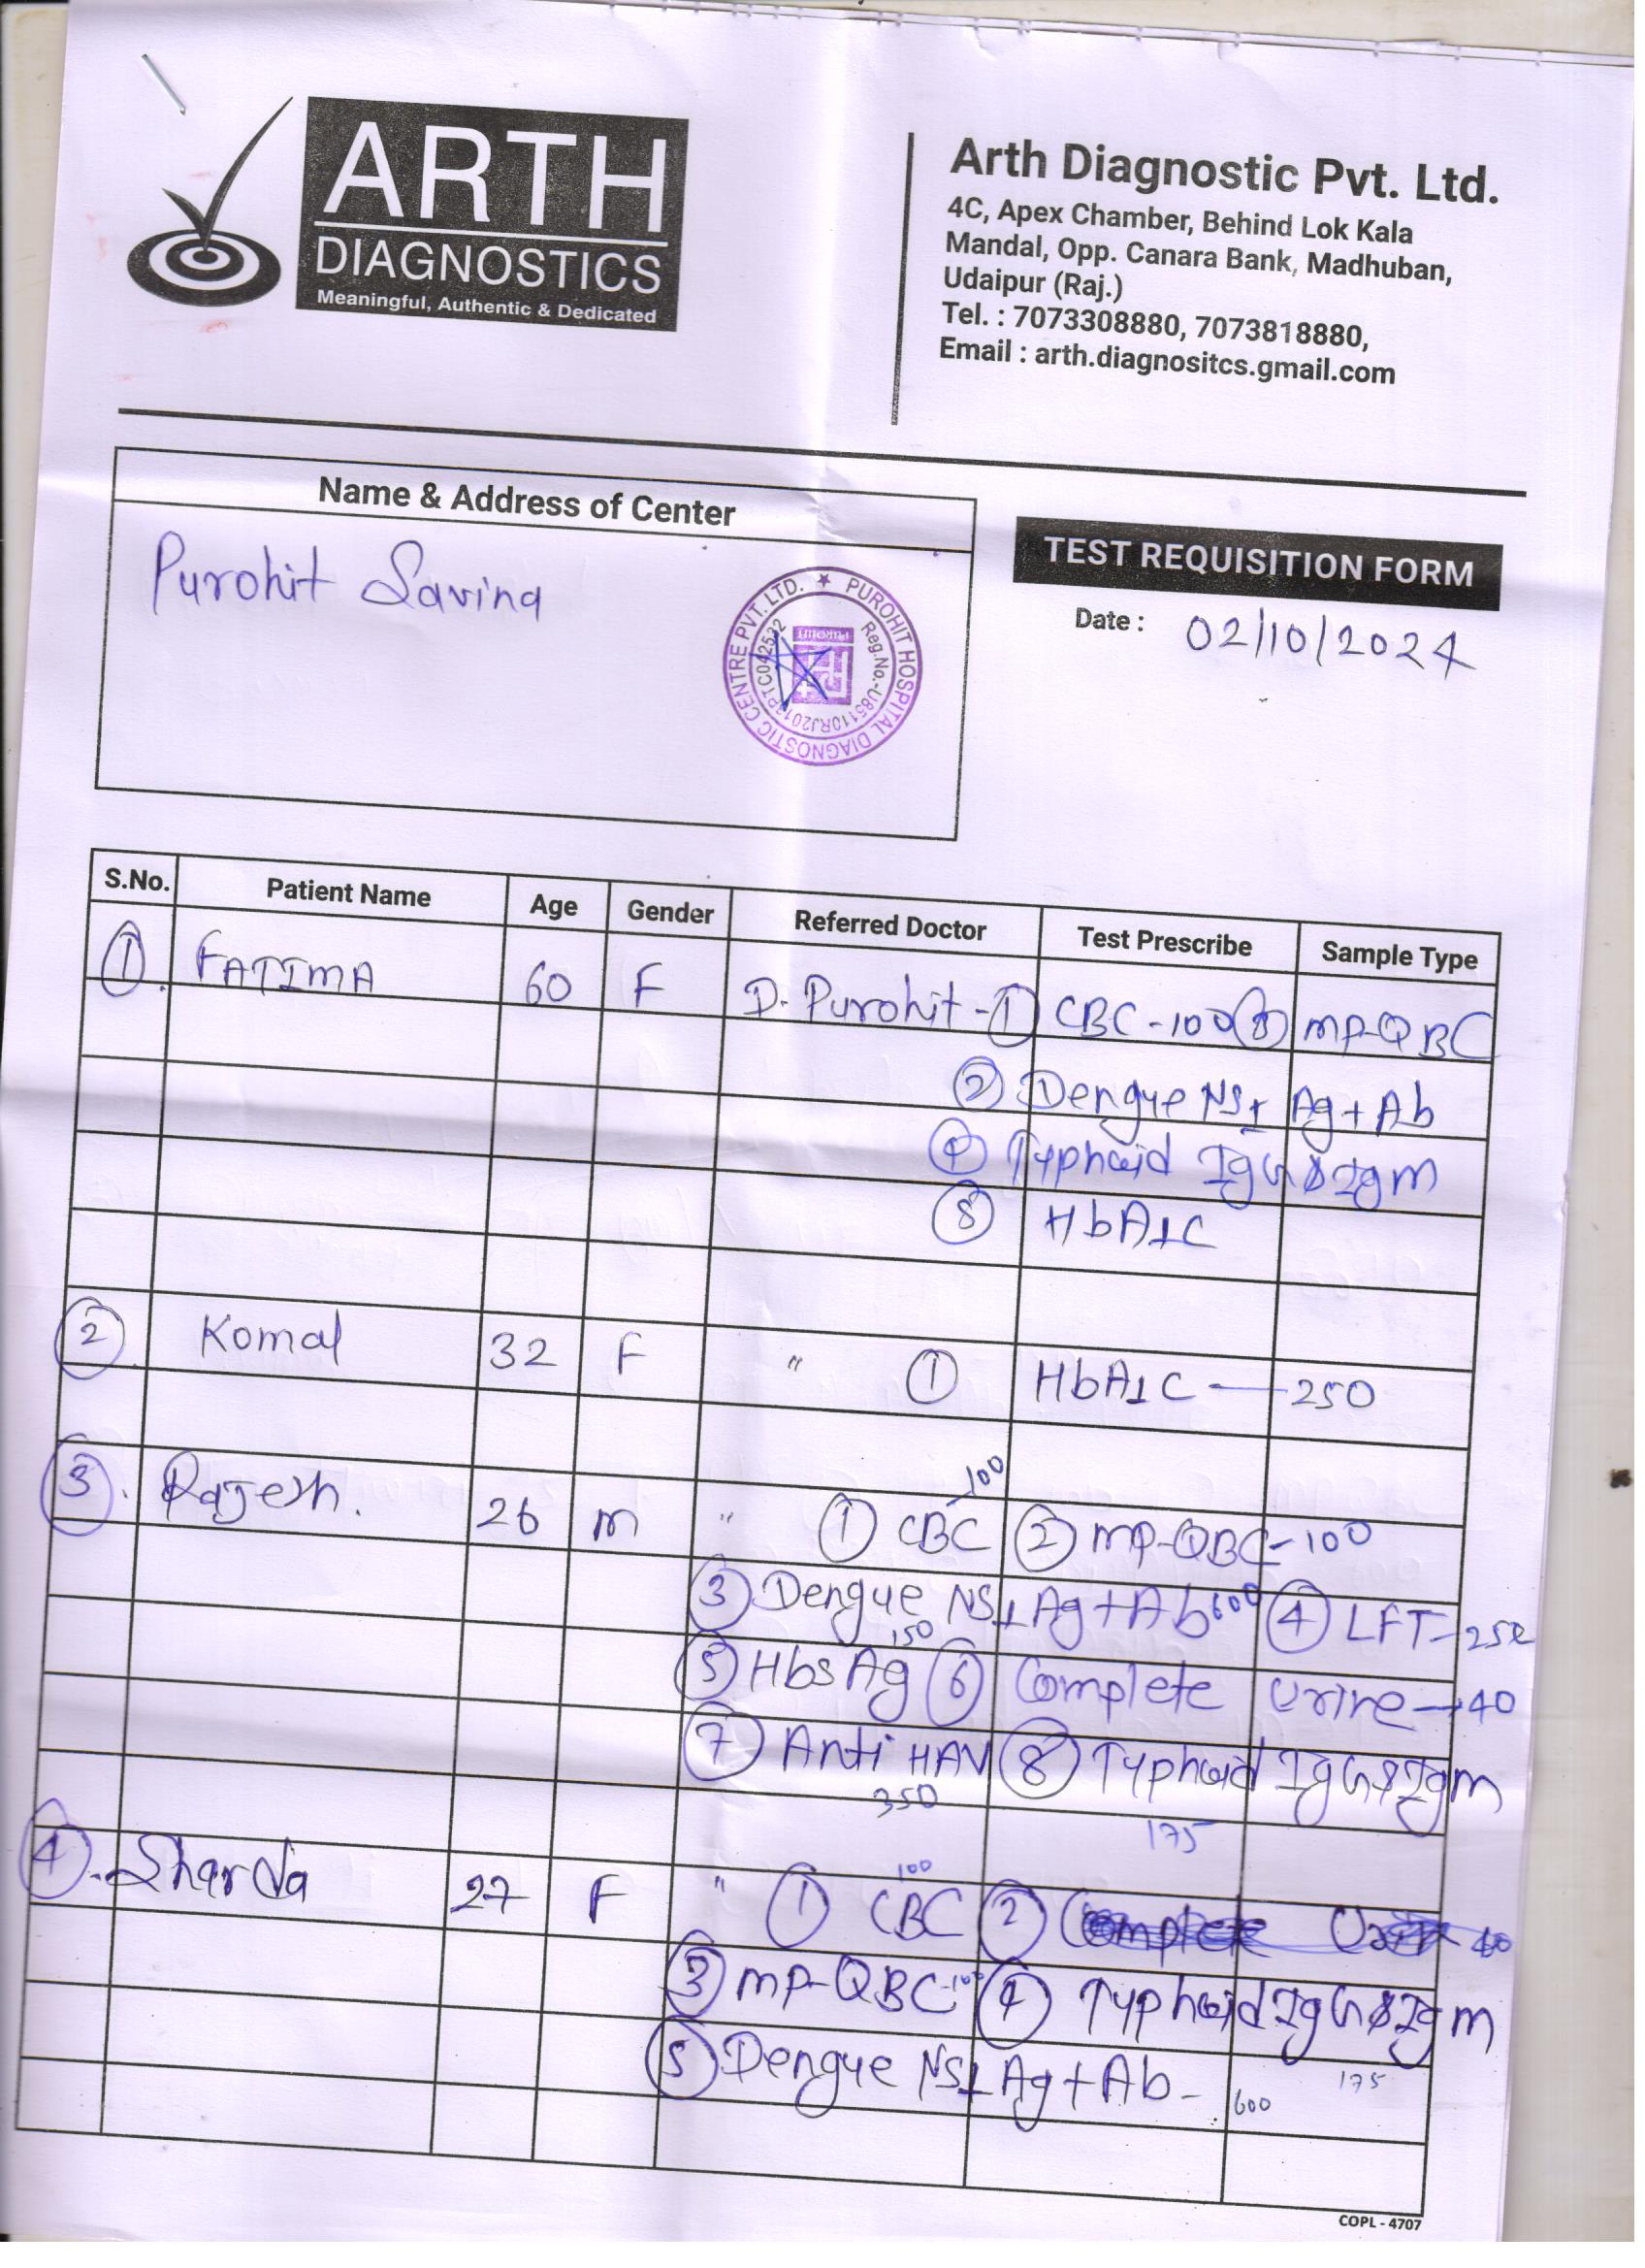 ARTH
DIAGNOSTICS
Meaningful, Authentic & Dedicated
Arth Diagnostic Pvt. Ltd.
4C, Apex Chamber, Behind Lok Kala
Mandal, Opp. Canara Bank, Madhuban,
Udaipur (Raj.)
Tel. : 7073308880, 7073818880,
Email : arth.diagnositcs.gmail.com
Name & Address of Center
Purohit Savina
PUROHIT HOSPITAL DIAGNOSTIC CENTRE PVT. LTD. ★
TEST REQUISITION FORM
Date : 02/10/2024
S.No. Patient Name Age Gender Referred Doctor Test Prescribe Sample Type
1. FATIMA 60 F D. Purohit - 1 CBC - 100 3 MP-QBC
2 Dengue NS1 Ag + Ab
4 Typhoid IgG & IgM
5 HbA1C
2. Komal 32 F " 1 HbA1C — 250
3. Rajesh. 26 m " 1 CBC - 100 2 MP-QBC - 100
3 Dengue NS1 Ag + Ab 600 4 LFT - 250
5 HbsAg 150 6 Complete Urine → 40
7 Anti HAV 350 8 Typhoid IgG & IgM 175
4. Sharda 27 F " 1 CBC 100 2
3 MP-QBC - 100 4 Typhoid IgG & IgM 175
5 Dengue NS1 Ag + Ab - 600
COPL - 4707